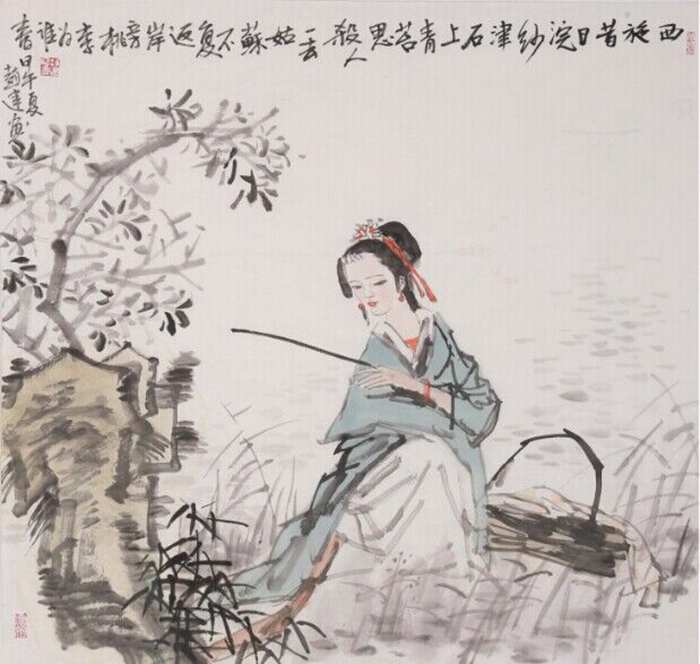 西施昔日浣纱津石上青苔思殺人一去姑蘇不复返岸旁桃李为谁春
甲午夏